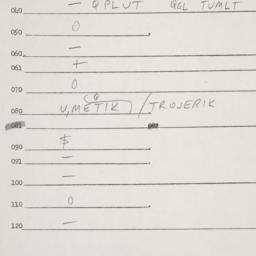 040 — QPLUT QGL TUMLT
050 0
060 —
061 +
070 0
080 U,METIK / TROJERIK
090 $
091 —
100 —
110 0
120 —